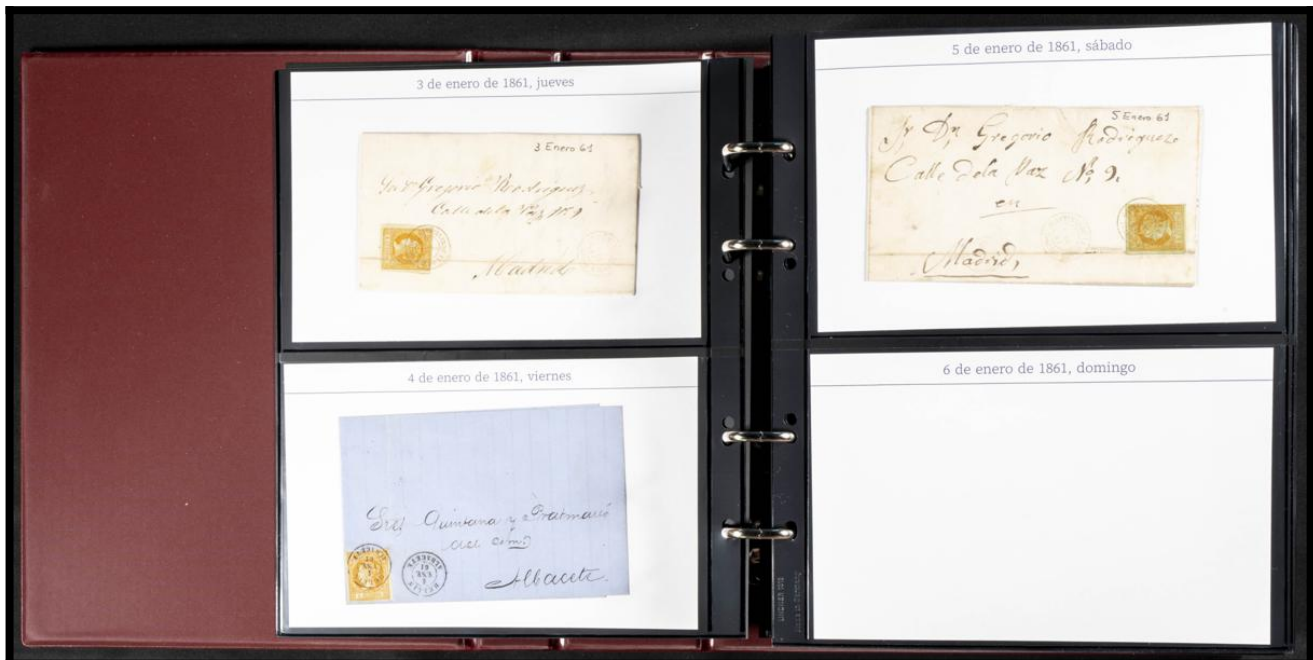 3 de enero de 1861, jueves
3 Enero 61
Gregorio Rodriguez
Calle de la Paz Nº 9
Madrid
4 de enero de 1861, viernes
Quintana y
del comº
Albacete
5 de enero de 1861, sábado
5 Enero 61
Sr Dn Gregorio Rodriguez
Calle de la Paz Nº 9.
en
Madrid,
6 de enero de 1861, domingo